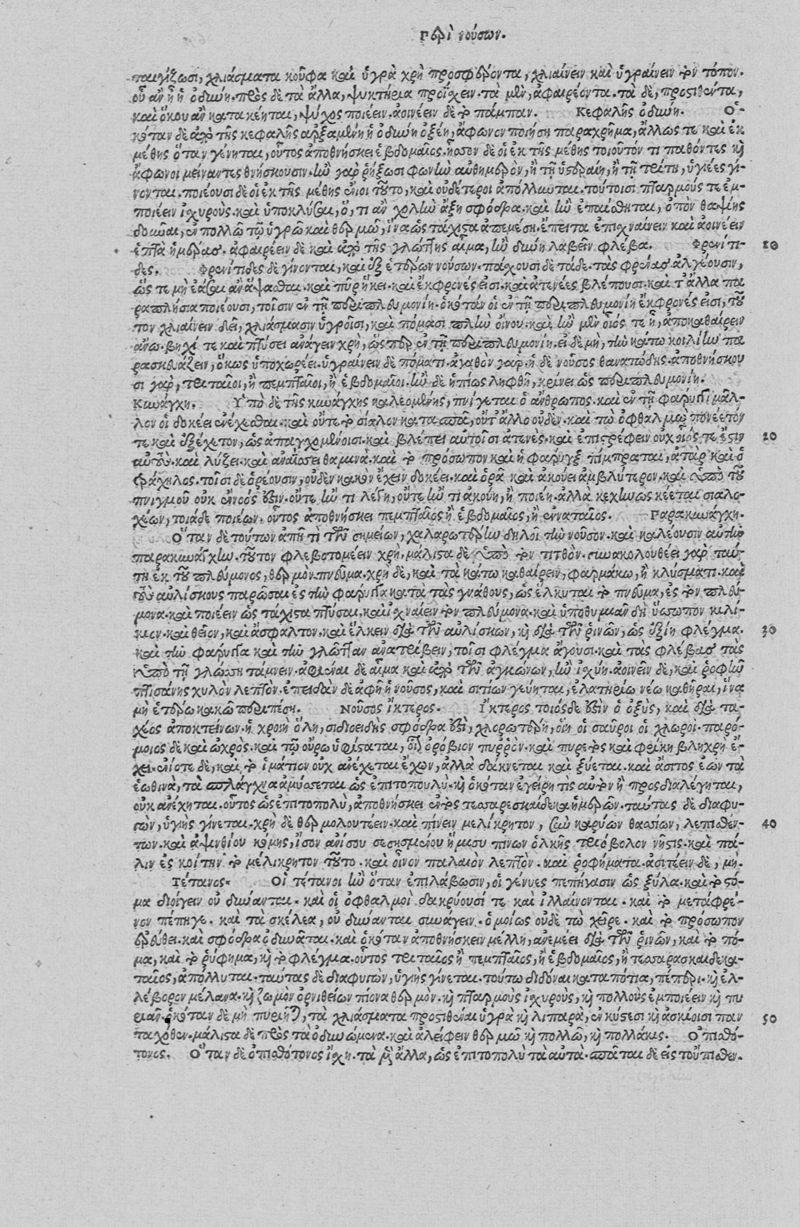 Περὶ νούσων.
παγίζωσι, χλιάσματα κοῦφα καὶ ὑγρὰ χρὴ προσφέροντα, χλιαίνειν καὶ ὑγραίνειν τὸν τόπον.
οὗ ἂν ᾖ ἡ ὀδύνη. πρὸς δὲ τὰ ἄλλα, ψυκτήρια προΐχειν. τὰ μὲν, ἀφαιρέοντα. τὰ δὲ, προστιθέντα,
καὶ ὅκου ἂν κατακέηται, ψύχος ποιέειν. ἀοινέειν δὲ τὸ πάμπαν. Κεφαλῆς ὀδύνη. Ὁ-
κόταν δὲ ἀπὸ τῆς κεφαλῆς ἀρξαμένη ἡ ὀδύνη ὀξέη, ἄφωνον ποιήσῃ παραχρῆμα, ἄλλως τε καὶ ἐκ
μέθης ὅταν γένηται, οὗτος ἀποθνήσκει ἑβδομαῖος. ἧσσον δὲ οἱ ἐκ τῆς μέθης τοιοῦτόν τι παθόντες καὶ
ἄφωνοι μείναντες θνήσκουσιν. ἢν γὰρ ῥήξωσι φωνὴν αὐθημερὸν, ἢ τῇ ὑστεραίῃ, ἢ τῇ τρίτῃ, ὑγιέες γί-
νονται. ποιέουσι δὲ οἱ ἐκ τῆς μέθης ἔνιοι τοῦτο, καὶ οὐδέτεροι ἀπόλλωνται. τούτοισι πταρμούς τε ἐμ-
ποιέειν ἰσχυρούς. καὶ ὑποκλύζειν, ὅ, τι ἂν χολὴν ἄξῃ σφόδρα. καὶ ἢν ἐπαίσθηται, ὀπὸν θαψίης
δοῦναι, ἐν πολλῷ τῷ ὑγρῷ καὶ θερμῷ, ἵνα ὡς τάχιστα ἀπεμέσῃ. ἔπειτα ἐπισχναίνειν καὶ ἀοινέειν
ἑπτὰ ἡμέρας. ἀφαιρέειν δὲ καὶ ἀπὸ τῆς γλώττης αἷμα, ἢν δύνῃ λαβεῖν φλέβα. Φρενίτι-
δες. Φρενίτιδες δὲ γίνονται, καὶ ἐξ ἑτέρων νούσων. πάσχουσι δὲ τάδε. τὰς φρένας ἀλγέουσιν,
ὥς τε μὴ ἐᾶσαι ἂν ἅψασθαι. καὶ πῦρ ἥκει. καὶ ἔκφρονές εἰσι. καὶ ἀτενὲς βλέπουσι. καὶ τ' ἄλλα πα
ραπλήσια ποιέουσι, τοῖσιν ἐν τῇ περιπλευμονίῃ. ὁκόταν οἱ ἐν τῇ περιπλευμονίῃ ἔκφρονές εἰσι, τοῦ
τον χλιαίνειν δεῖ, χλιάσμασιν ὑγροῖσι, καὶ πόμασι πλὴν οἴνου. καὶ ἢν μὲν οἷός τε ᾖ, ἀποκαθαίρειν
ἄνω. βηχί τε καὶ πτύσει ἀνάγειν χρὴ, ὥσπερ ἐν τῇ περιπλευμονίῃ. εἰ δὲ μὴ, τὴν κάτω κοιλίην πα
ρασκευάζειν, ὅκως ὑποχωρέει. ὑγραίνειν δὲ πόματι. ἀγαθὸν γάρ. ἡ δὲ νοῦσος θανατώδης. ἀποθνήσκου
σι γὰρ, τριταῖοι, ἢ πεμπταῖοι, ἢ ἑβδομαῖοι. ἢν δὲ ἠπίως ληφθῇ, κρίνει ὡς περιπλευμονίη.
Κυνάγχη. Ὑπὸ δὲ τῆς κυνάγχης καλεομένης, πνίγεται ὁ ἄνθρωπος. καὶ ἐν τῇ φάρυγγι μᾶλ-
λον οἱ δοκέει ἐνέχεσθαι. καὶ οὔτε τὸ σίαλον καταπίνει, οὔτ' ἄλλο οὐδέν. καὶ τὼ ὀφθαλμὼ πονέετόν
τε καὶ ἐξέχετον, ὡς ἀπαγχομένοισι. καὶ βλέπει αὐτοῖσι ἀτενὲς. καὶ ἐπιστρέφειν οὐχ οἷός τε ἐστὶν
αὐτούς. καὶ λύζει. καὶ ἀναΐσσει θαμινά. καὶ τὸ πρόσωπον καὶ ἡ φάρυγξ πίμπραται, ἀτὰρ καὶ ὁ
τράχηλος. τοῖσι δὲ ὁρέουσιν, οὐδὲν κακὸν ἔχειν δοκέει. καὶ ὁρᾷ καὶ ἀκούει ἀμβλύτερον. καὶ ὑπὸ τοῦ
πνιγμοῦ οὐκ ἔννοός ἐστιν. οὔτε ἤν τι λέγῃ, οὔτε ἤν τι ἀκούῃ, ἢ ποιέῃ. ἀλλὰ κεχηνὼς κέεται σιαλο-
χέων, τοιάδε ποιέων. οὗτος ἀποθνήσκει πεμπταῖος ἢ ἑβδομαῖος, ἢ ἐναταῖος. Παρακυνάγχη.
Ὅταν δὲ τούτων ἀπῇ τι τῶν σημείων, χαλαρωτέρην δηλοῖ τὴν νοῦσον. καὶ καλέουσιν αὐτὴν
παρακυνάγχην. τοῦτον φλεβοτομέειν χρή. μάλιστα δὲ ὑπὸ τὸν τιτθόν. συνακολουθέει γὰρ ταύ-
τῃ ἐκ τοῦ πλεύμονος, θερμὸν πνεῦμα. χρὴ δὲ, καὶ τὰ κάτω καθαίρειν, φαρμάκῳ, ἢ κλύσματι. καὶ
τοὺς αὐλίσκους παρῶσαι ἐς τὴν φάρυγγα κατὰ τὰς γνάθους, ὡς ἕλκηται τὸ πνεῦμα, ἐς τὸν πλεύ-
μονα. καὶ ποιέειν ὡς τάχιστα πτύσαι. καὶ ἰσχναίνειν τὸν πλεύμονα. καὶ ὑποθυμιᾶν δὴ ὕσσωπον κιλί-
κιον. καὶ θεῖον, καὶ ἄσφαλτον. καὶ ἕλκειν διὰ τῶν αὐλίσκων, καὶ διὰ τῶν ῥινῶν, ὡς ἐξίῃ φλέγμα.
καὶ τὴν φάρυγγα καὶ τὴν γλῶτταν ἀνατρίβειν, τοῖσι φλέγμα ἄγουσι. καὶ τὰς φλέβας τὰς
ὑπὸ τῇ γλώσσῃ τάμνειν. ἀφιέναι δὲ αἷμα καὶ ἀπὸ τῶν ἀγκώνων, ἢν ἰσχύῃ. ἀοινέειν δὲ, καὶ ῥοφῇν
πτισάνης χυλὸν λεπτόν. ἐπειδὰν δὲ ἀφῇ ἡ νοῦσος, καὶ σιτίων γεύηται, ἐλατηρίῳ νέῳ καθῆραι, ἵνα
μὴ ἑτέρῳ κακῷ περιπέσῃ. Νοῦσος ἴκτερος. Ἴκτερος τοιόσδε ἐστὶν ὁ ὀξὺς, καὶ διὰ τα-
χέος ἀποκτείνων. ἡ χροιὴ ὅλη, σιδιοειδὴς σφόδρα ἐστὶ, χλωροτέρη, οἷοι οἱ σαῦροι οἱ χλωροί. παρό-
μοιος δὲ καὶ ὠχρός. καὶ τῷ οὔρῳ ὑφίσταται, οἷον ὀρόβιον πυῤῥόν. καὶ πυρετὸς καὶ φρίκη βληχρὴ ἔ-
χει. ἐνίοτε δὲ, καὶ τὸ ἱμάτιον οὐκ ἀνέχεται ἔχων, ἀλλὰ δάκνεται καὶ ξύεται. καὶ ἄσιτος ἐὼν τὰ
ἑωθινὰ, τὰ σπλάγχνα ἀμύσσεται ὡς ἐπιτοπουλύ. καὶ ὁκόταν ἐγείρῃ τις αὐτὸν ἢ προσδιαλέγηται,
οὐκ ἀνέχηται. οὗτος ὡς ἐπιτοπολὺ, ἀποθνήσκει ἐντὸς τεσσαρεσκαίδεκα ἡμερῶν. ταύτας δὲ διαφυ-
γὼν, ὑγιὴς γίνεται. χρὴ δὲ θερμολουτέειν. καὶ πίνειν μελίκρητον, ξὺν καρύων θασίων, λεπισθέν-
των. καὶ ἀψινθίου κόμης, ἴσον ἀνίσου σεσησμένου ἥμισυ πίνων ὁλκῆς τριόβολον νῆστις. καὶ πά-
λιν ἐς κοίτην τὸ μελίκρητον τοῦτο. καὶ οἶνον παλαιὸν λεπτὸν. καὶ ῥοφήματα. ἀσιτέειν δὲ, μή.
Τέτανος. Οἱ τέτανοι ἢν ὅταν ἐπιλάβωσιν, οἱ γέννες πεπήγασιν ὡς ξύλα. καὶ τὸ στό-
μα διοίγειν οὐ δύνανται. καὶ οἱ ὀφθαλμοὶ δακρύουσί τε καὶ ἰλλαίνονται. καὶ τὸ μετάφρε-
νον πέπηγε. καὶ τὰ σκέλεα, οὐ δύνανται συνάγειν. ὁμοίως οὐδὲ τὼ χεῖρε. καὶ τὸ πρόσωπον
ἐρεύθει. καὶ σφόδρα ὀδυνᾶται. καὶ ὁκόταν ἀποθνήσκειν μέλλῃ, ἀνεμέει διὰ τῶν ῥινῶν, καὶ τὸ πό-
μα, καὶ τὸ ῥύφημα, καὶ τὸ φλέγμα. οὗτος τριταῖος ἢ πεμπταῖος, ἢ ἑβδομαῖος, ἢ τεσσαρασκαιδεκα-
ταῖος, ἀπόλλυται. ταύτας δὲ διαφυγὼν, ὑγιὴς γίνεται. τούτῳ διδόναι καταπότια, πέπερι. καὶ ἑλ-
λέβορον μέλανα. καὶ ζωμὸν ὀρνιθείων πίονα θερμὸν. καὶ πταρμοὺς ἰσχυροὺς, καὶ πολλοὺς ἐμποιέειν καὶ πυ
ριᾶν. ὁκόταν δὲ μὴ πυριῇ, τὰ χλιάσματα προστιθέναι ὑγρὰ καὶ λιπαρὰ, ἐν κύστεσι καὶ ἀσκίοισι παν
ταχόθεν. μάλιστα δὲ πρὸς τὰ ὀδυνώμενα. καὶ ἀλείφειν θερμῷ καὶ πολλῷ, καὶ πολλάκις. Ὀπισθό-
τονος. Ὅταν δὲ ὀπισθότονος ἴσχῃ. τὰ μὲν ἄλλα, ὡς ἐπιτοπολὺ τὰ αὐτά. σπᾶται δὲ εἰς τοὔπισθεν.
10
20
30
40
50